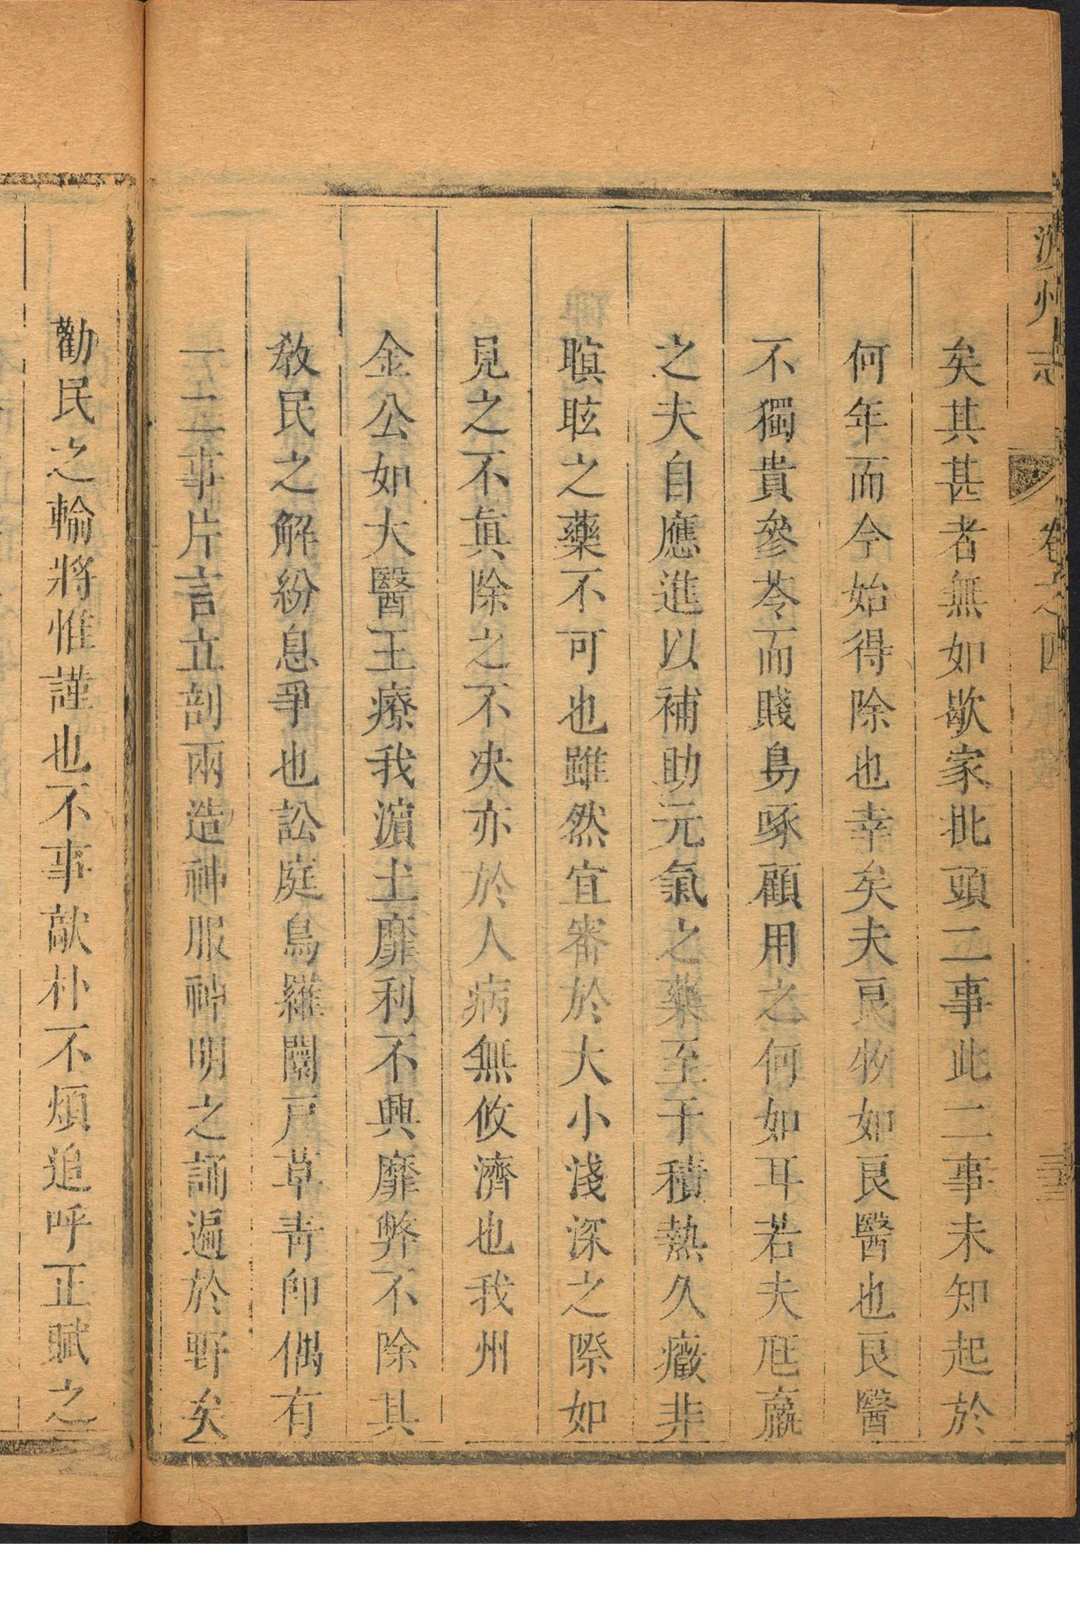 州志 卷之四
矣其甚者無如歇家批頭二事此二事未知起於
何年而今始得除也幸矣夫良牧如良醫也良醫
不獨貴參苓而賤烏啄顧用之何如耳若夫尫羸
之夫自應進以補助元氣之藥至于積熱久癥非
瞑眩之藥不可也雖然宜審於大小淺深之際如
見之不眞除之不决亦於人病無攸濟也我州
金公如大醫王療我濵土靡利不興靡弊不除其
敎民之解紛息爭也訟庭鳥羅闃戸草靑卽偶有
一二事片言立剖兩造神服神明之誦遍於野矣
勸民之輸將惟謹也不事敲朴不煩追呼正賦之